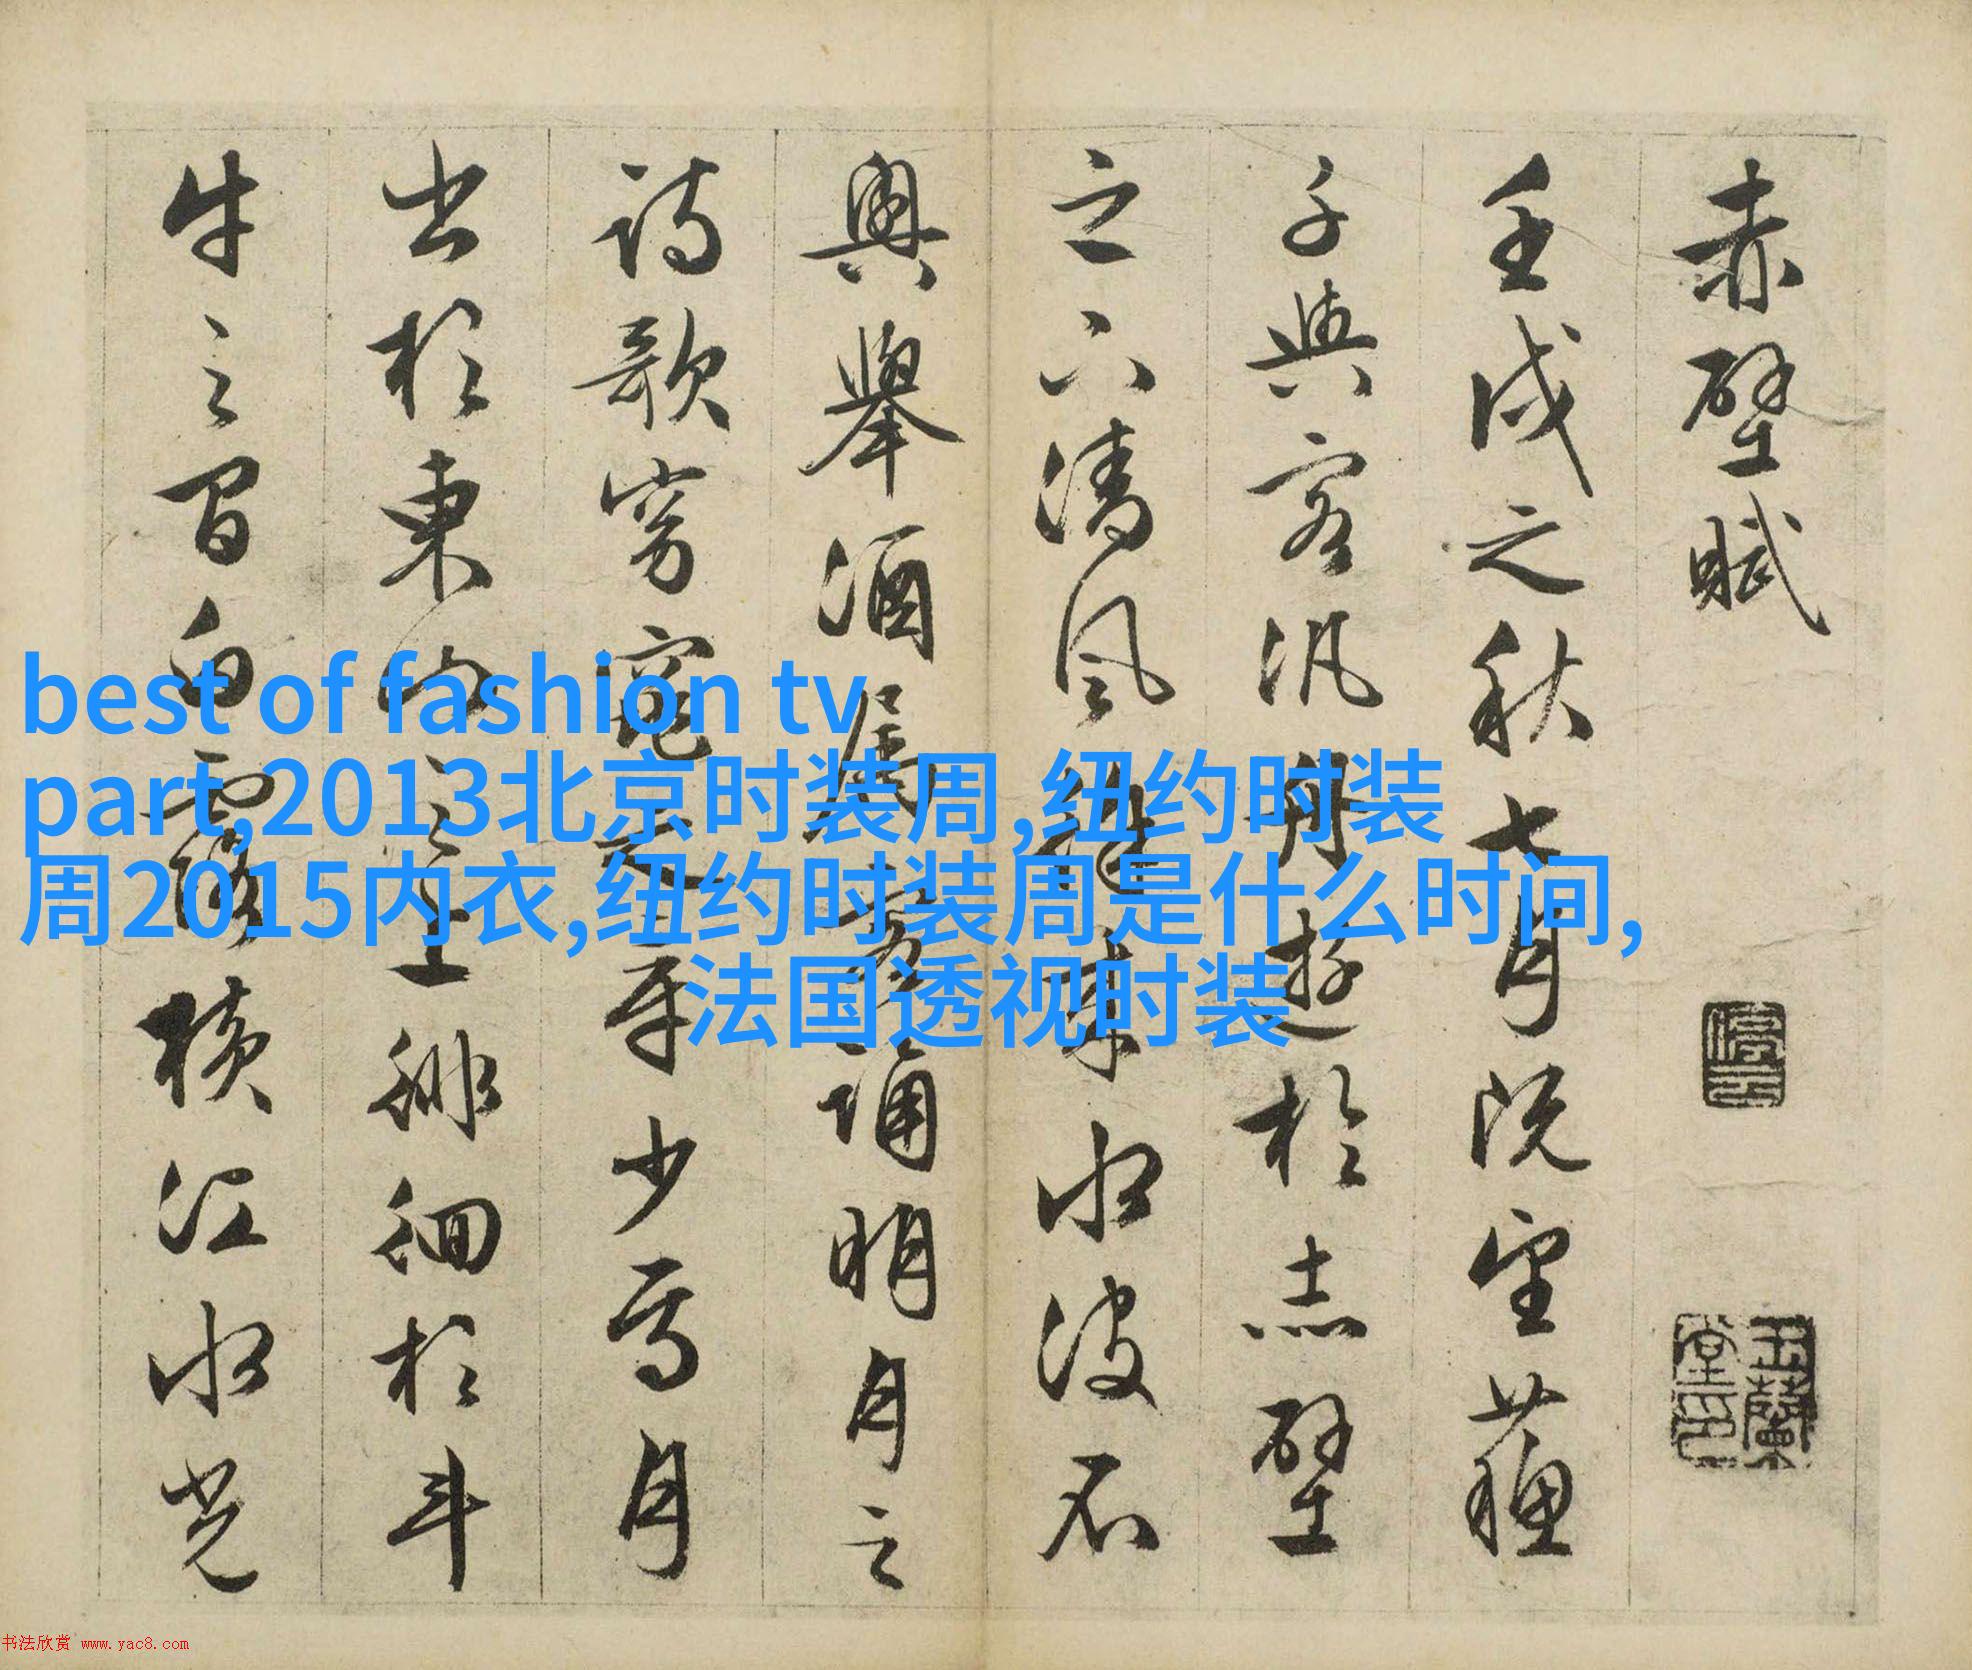 赤壁賦
壬戌之秋七月既望蘇
子與客汎舟遊於赤壁
之下清風徐來水波不
興舉酒屬客誦明月之
詩歌窈窕之章少焉月
出於東山之上徘徊於斗
牛之間白露橫江水光
best of fashion tv
part,2013北京时装周,纽约时装
周2015内衣,纽约时装周是什么时间,
法国透视时装
书法欣赏 www.yac8.com